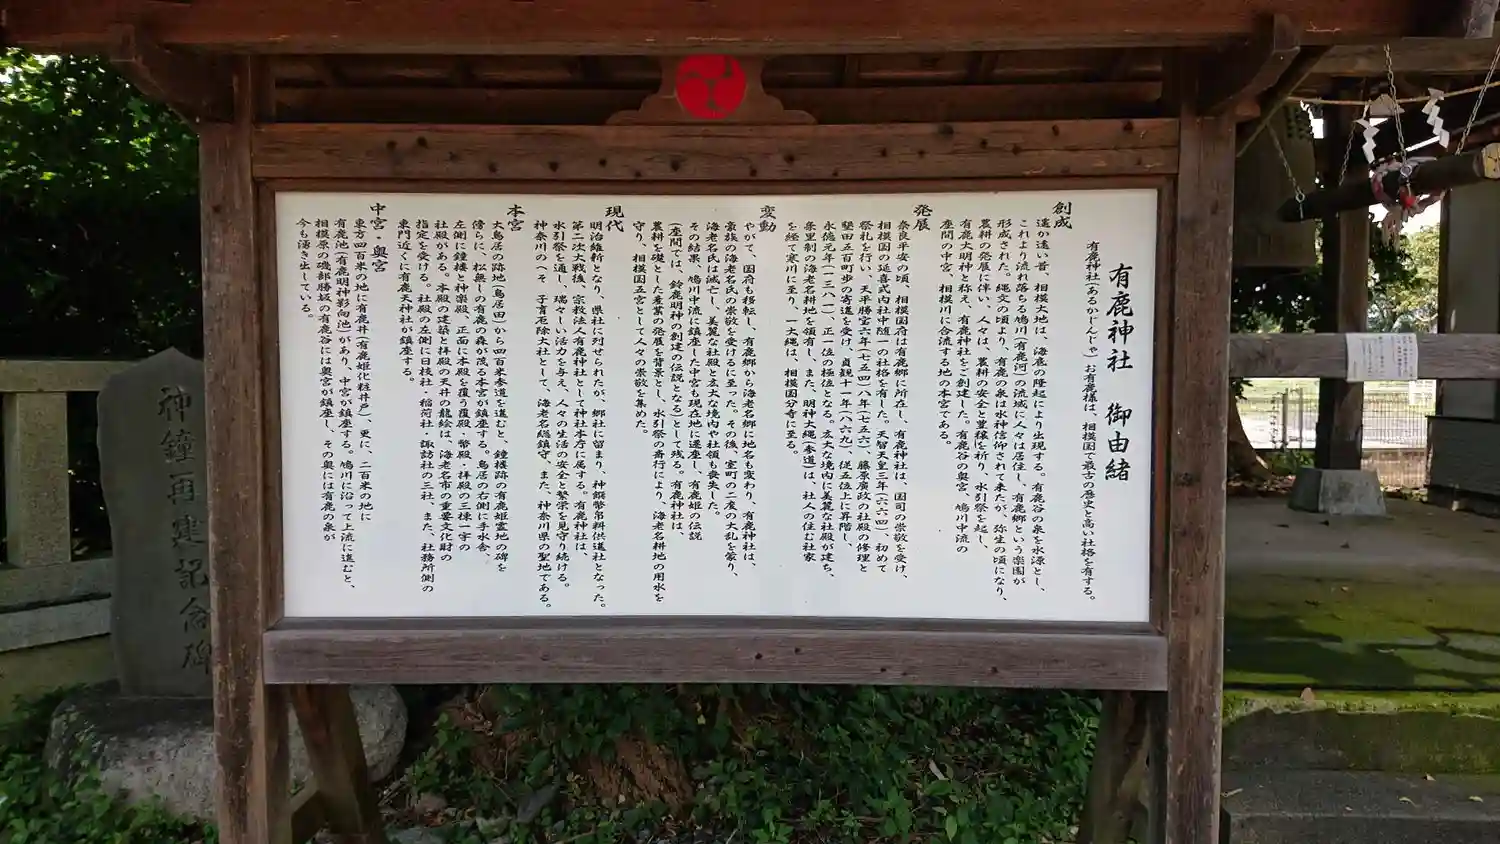 有鹿神社 御由緒
有鹿神社(あるかじんじゃ)お有鹿様は、相模国で最古の歴史と高い社格を有する。
創成
遥か遠い昔、相模大地は、海底の隆起により出現する。有鹿谷の泉を水源とし、
これより流れ落ちる鳩川(有鹿河)の流域に人々は居住し、有鹿郷という楽園が
形成された。縄文の頃より、有鹿の泉は水神信仰されて来たが、弥生の頃になり、
農耕の発展に伴い、人々は、農耕の安全と豊穣を祈り、水引祭を起し、
有鹿大明神と称え、有鹿神社をご創建した。有鹿谷の奥宮、鳩川中流の
座間の中宮、相模川に合流する地の本宮である。
発展
奈良平安の頃、相模国府は有鹿郷に所在し、有鹿神社は、国司の崇敬を受け、
相模国の延喜式内社中随一の社格を有した。天智天皇三年(六六四)、初めて
祭礼を行い、天平勝宝六年(七五四)~八年(七五六)、藤原廣政の社殿の修理と
墾田五百町歩の寄進を受け、貞観十一年(八六九)、従五位上に昇階し、
永徳元年(一三八一)、正一位の極位となる。広大な境内に美麗な社殿が建ち、
条里制の海老名耕地を領有し、また、明神大縄(参道)は、社人の住む社家
を経て寒川に至り、一大縄は、相模国分寺に至る。
変動
やがて、国府も移転し、有鹿郷から海老名郷に地名も変わり、有鹿神社は、
豪族の海老名氏の崇敬を受けるに至った。その後、室町の二度の大乱を蒙り、
海老名氏は滅亡し、美麗な社殿と広大な境内や社領も喪失した。
その結果、鳩川中流に鎮座した中宮も現在地に遷座し、有鹿姫の伝説
(座間では、鈴鹿明神の創建の伝説となる)として残る。有鹿神社は、
農耕を礎とした産業の発展を背景とし、水引祭の斎行により、海老名耕地の用水を
守り、相模国五宮として人々の崇敬を集めた。
現代
明治維新となり、県社に列せられたが、郷社に留まり、神饌幣帛料供進社となった。
第二次大戦後、宗教法人有鹿神社として神社本庁に属する。有鹿神社は、
水引祭を通し、瑞々しい活力を与え、人々の生活の安全と繁栄を見守り続ける。
神奈川のへそ 子育厄除大社として、海老名総鎮守、また、神奈川県の聖地である。
本宮
大鳥居の跡地(鳥居田)から四百米参道を進むと、鐘楼跡の有鹿姫霊地の碑を
傍らに、松無しの有鹿の森が茂る本宮が鎮座する。鳥居の右側に手水舎、
左側に鐘楼と神楽殿、正面に本殿を覆う覆殿・幣殿・拝殿の三棟一宇の
社殿がある。本殿の建築と拝殿の天井の龍絵は、海老名市の重要文化財の
指定を受ける。社殿の左側に日枝社、稲荷社、諏訪社の三社、また、社務所側の
東門近くに有鹿天神社が鎮座する。
中宮・奥宮
東方四百米の地に有鹿井(有鹿姫化粧井戸)、更に、二百米の地に
有鹿池(有鹿明神影向池)があり、中宮が鎮座する。鳩川に沿って上流に進むと、
相模原の磯部勝坂の有鹿谷には奥宮が鎮座し、その奥には有鹿の泉が
今も湧き出している。
神鐘再建記念碑